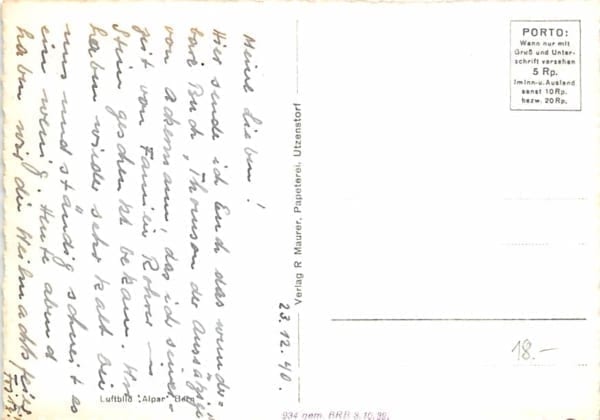 Meine Lieben!
Hier sende ich Euch das wunder-
bare Buch, "Thomson der Aussätzige"
von Ackermann, das ich seiner-
zeit von Familie Rohrer in
Stein geschenkt bekam. Wir
haben wieder sehr kalt bei
uns und ständig schneit es
ein wenig. Heute abend
haben wir die Weihnachtsfeier
23.12.40.
Luftbild "Alpar" Bern
Verlag R Maurer, Papeterei, Utzenstorf
PORTO:
Wenn nur mit
Gruß und Unter-
schrift versehen
5 Rp.
Im Inn- u. Ausland
sonst 10 Rp.
bezw. 20 Rp.
18.-
934 gem. BRB 3.10.39.